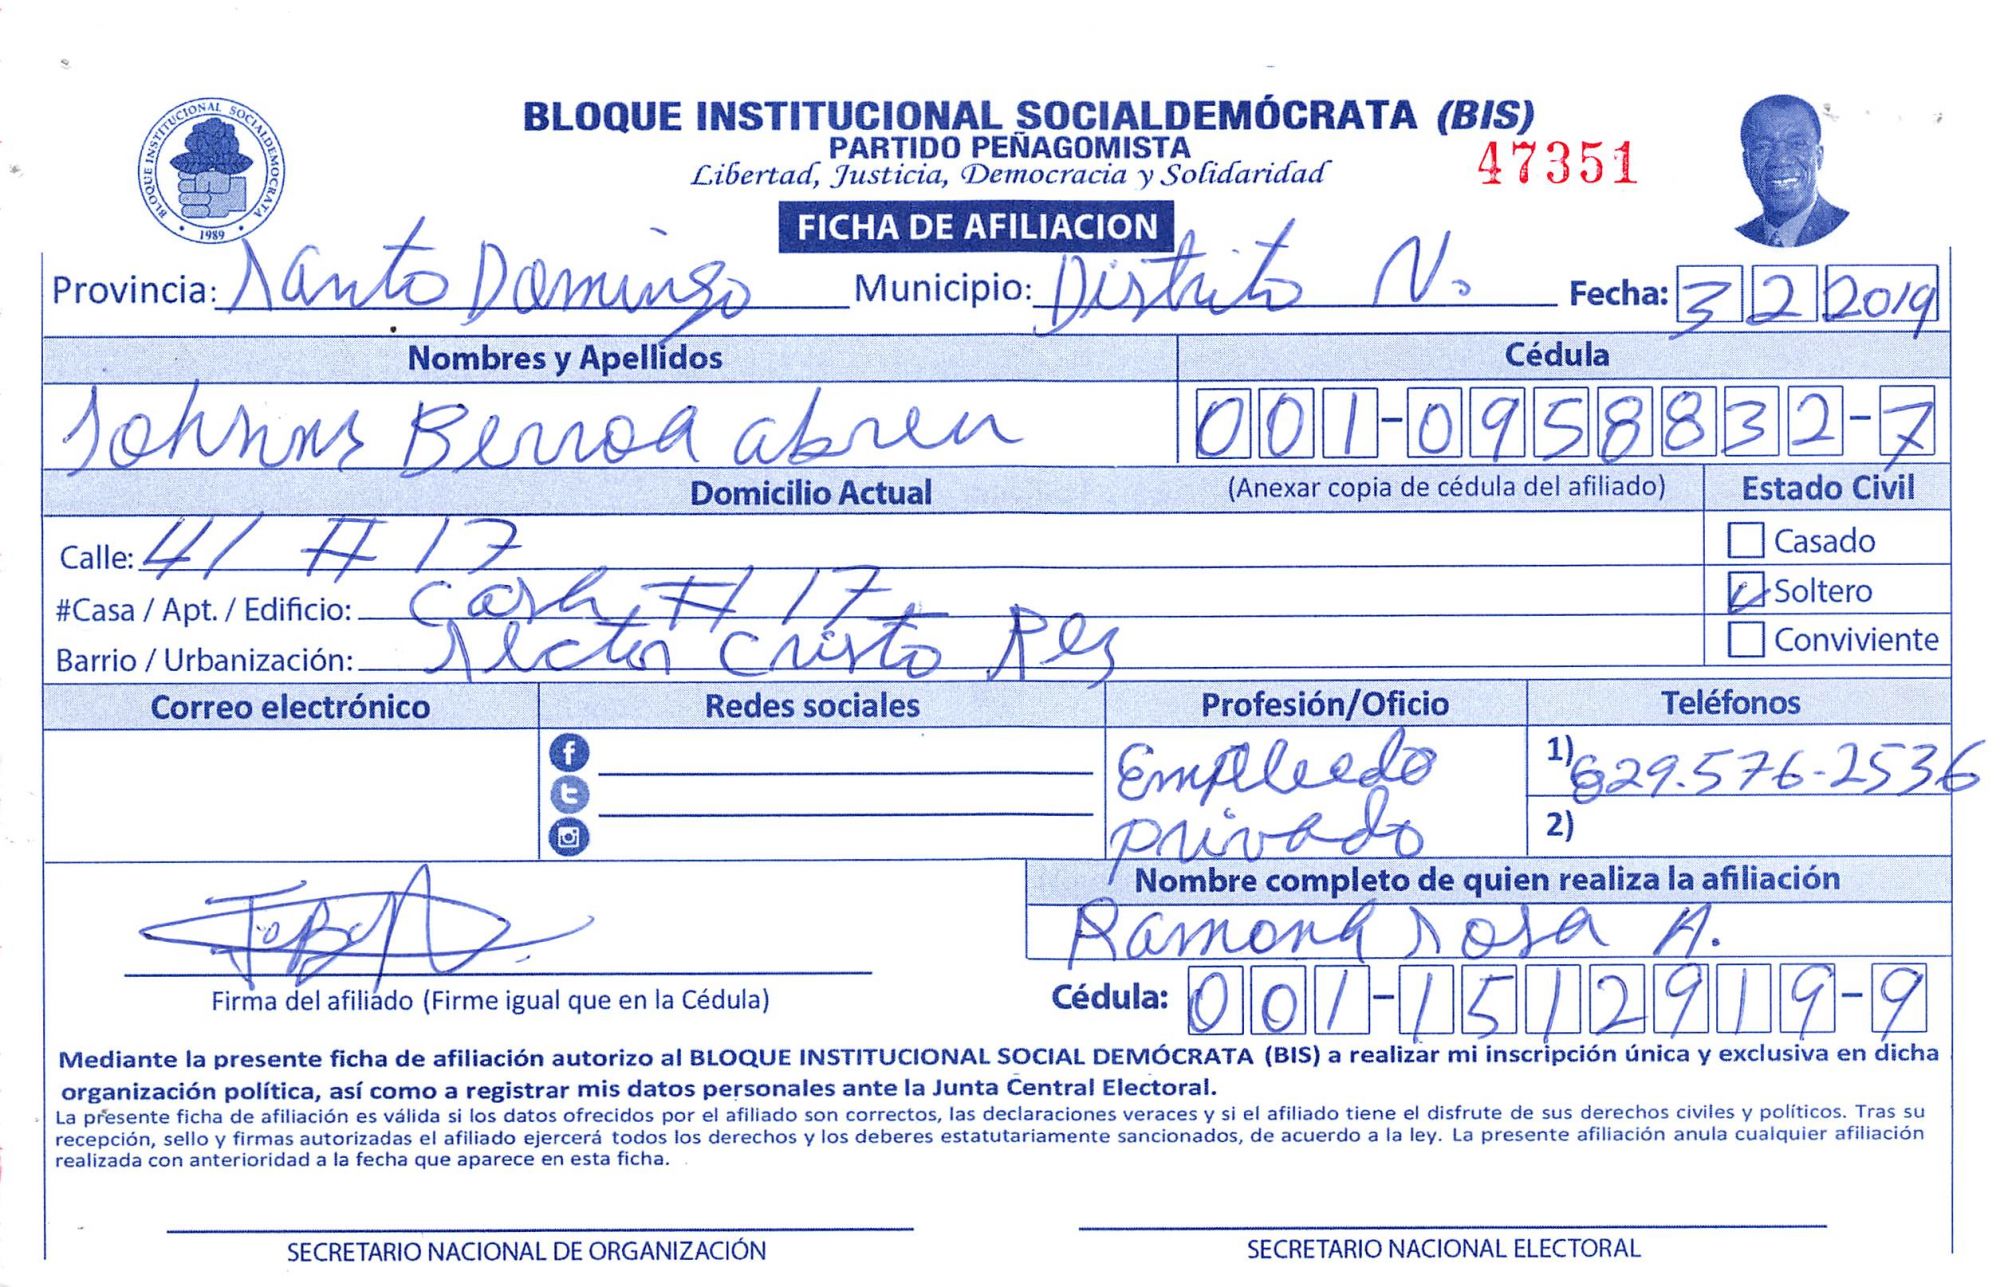 BLOQUE INSTITUCIONAL SOCIALDEMOCRATA
1989
BLOQUE INSTITUCIONAL SOCIALDEMÓCRATA (BIS)
PARTIDO PEÑAGOMISTA
47351
Libertad, Justicia, Democracia y Solidaridad
FICHA DE AFILIACION
Provincia: Santo Domingo Municipio: Distrito N. Fecha: 3 2 2019
Nombres y Apellidos Cédula
Berroa abreu 001-0958832-7
Domicilio Actual (Anexar copia de cédula del afiliado) Estado Civil
Calle: 41 # 17 Casado
#Casa / Apt. / Edificio: Casa # 17 Soltero
Barrio / Urbanización: Sector Cristo Rey Conviviente
Correo electrónico Redes sociales Profesión/Oficio Teléfonos
Empleado 1) 829.576-2536
privado 2)
Nombre completo de quien realiza la afiliación
Ramona rosa A.
Firma del afiliado (Firme igual que en la Cédula) Cédula: 001-1512919-9
Mediante la presente ficha de afiliación autorizo al BLOQUE INSTITUCIONAL SOCIAL DEMÓCRATA (BIS) a realizar mi inscripción única y exclusiva en dicha
organización política, así como a registrar mis datos personales ante la Junta Central Electoral.
La presente ficha de afiliación es válida si los datos ofrecidos por el afiliado son correctos, las declaraciones veraces y si el afiliado tiene el disfrute de sus derechos civiles y políticos. Tras su
recepción, sello y firmas autorizadas el afiliado ejercerá todos los derechos y los deberes estatutariamente sancionados, de acuerdo a la ley. La presente afiliación anula cualquier afiliación
realizada con anterioridad a la fecha que aparece en esta ficha.
SECRETARIO NACIONAL DE ORGANIZACIÓN SECRETARIO NACIONAL ELECTORAL